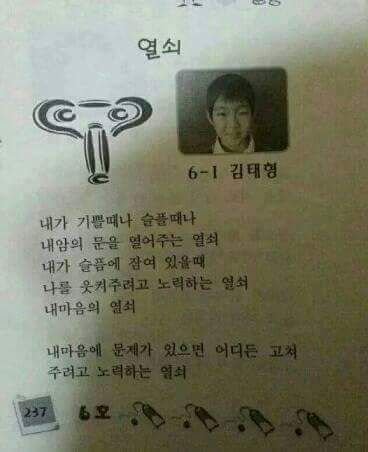 열쇠
6-1 김태형
내가 기쁠때나 슬플때나
내암의 문을 열어주는 열쇠
내가 슬픔에 잠여 있을때
나를 웃켜주려고 노력하는 열쇠
내마음의 열쇠
내마음에 문제가 있으면 어디든 고쳐
주려고 노력하는 열쇠
237 6호